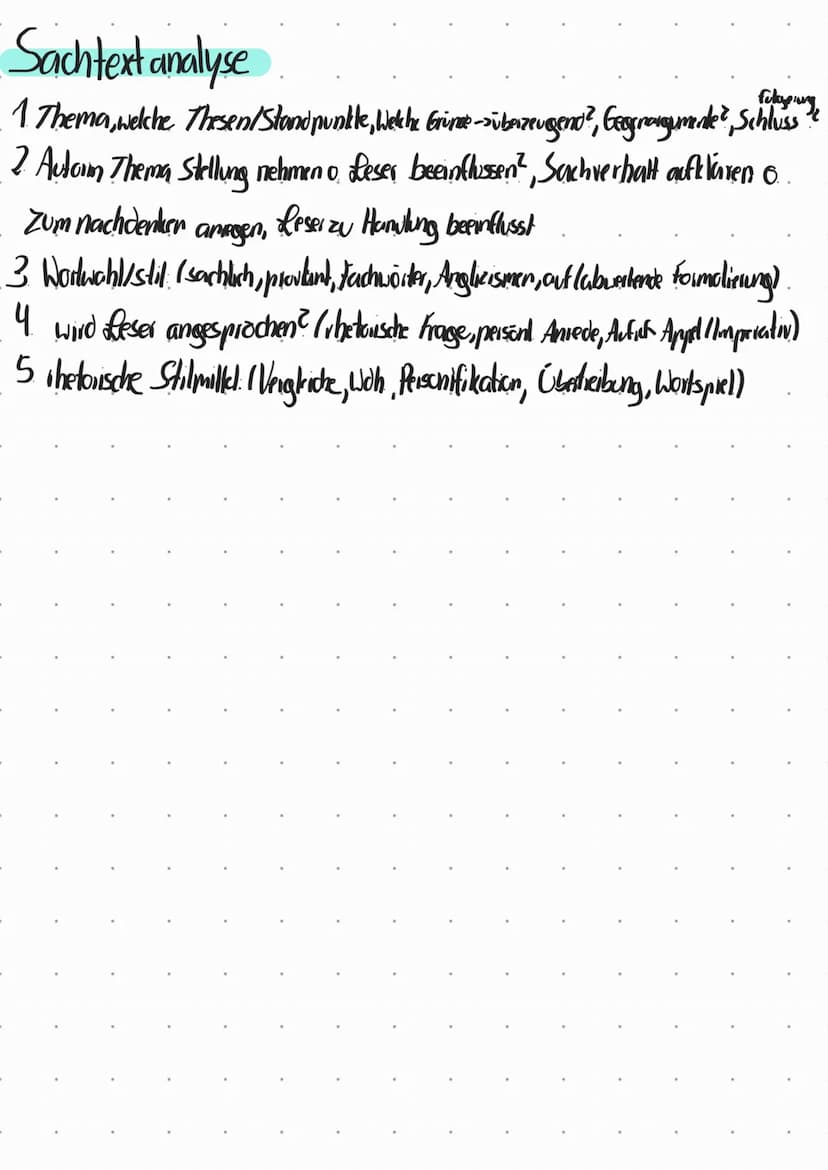 Sachtextanalyse
1 Thema, welche Thesen/Standpunkte, Welche Gründe → überzeugend?, Gegenargumente?, Schlussfolgerung?
2 Autorin Thema Stellung nehmen o. Leser beeinflussen?, Sachverhalt aufklären o.
zum nachdenken anregen, Leser zu Handlung beeinflusst
3 Wortwahl/stil (sachlich, provokant, Fachwörter, Anglizismen, auf/abwertende Formulierung)
4 wird Leser angesprochen? (rhetorische Frage, persönl Anrede, Appell/Imperativ)
5 rhetorische Stilmittel: (Vergleiche, Wdh, Personifikation, Übertreibung, Wortspiel)